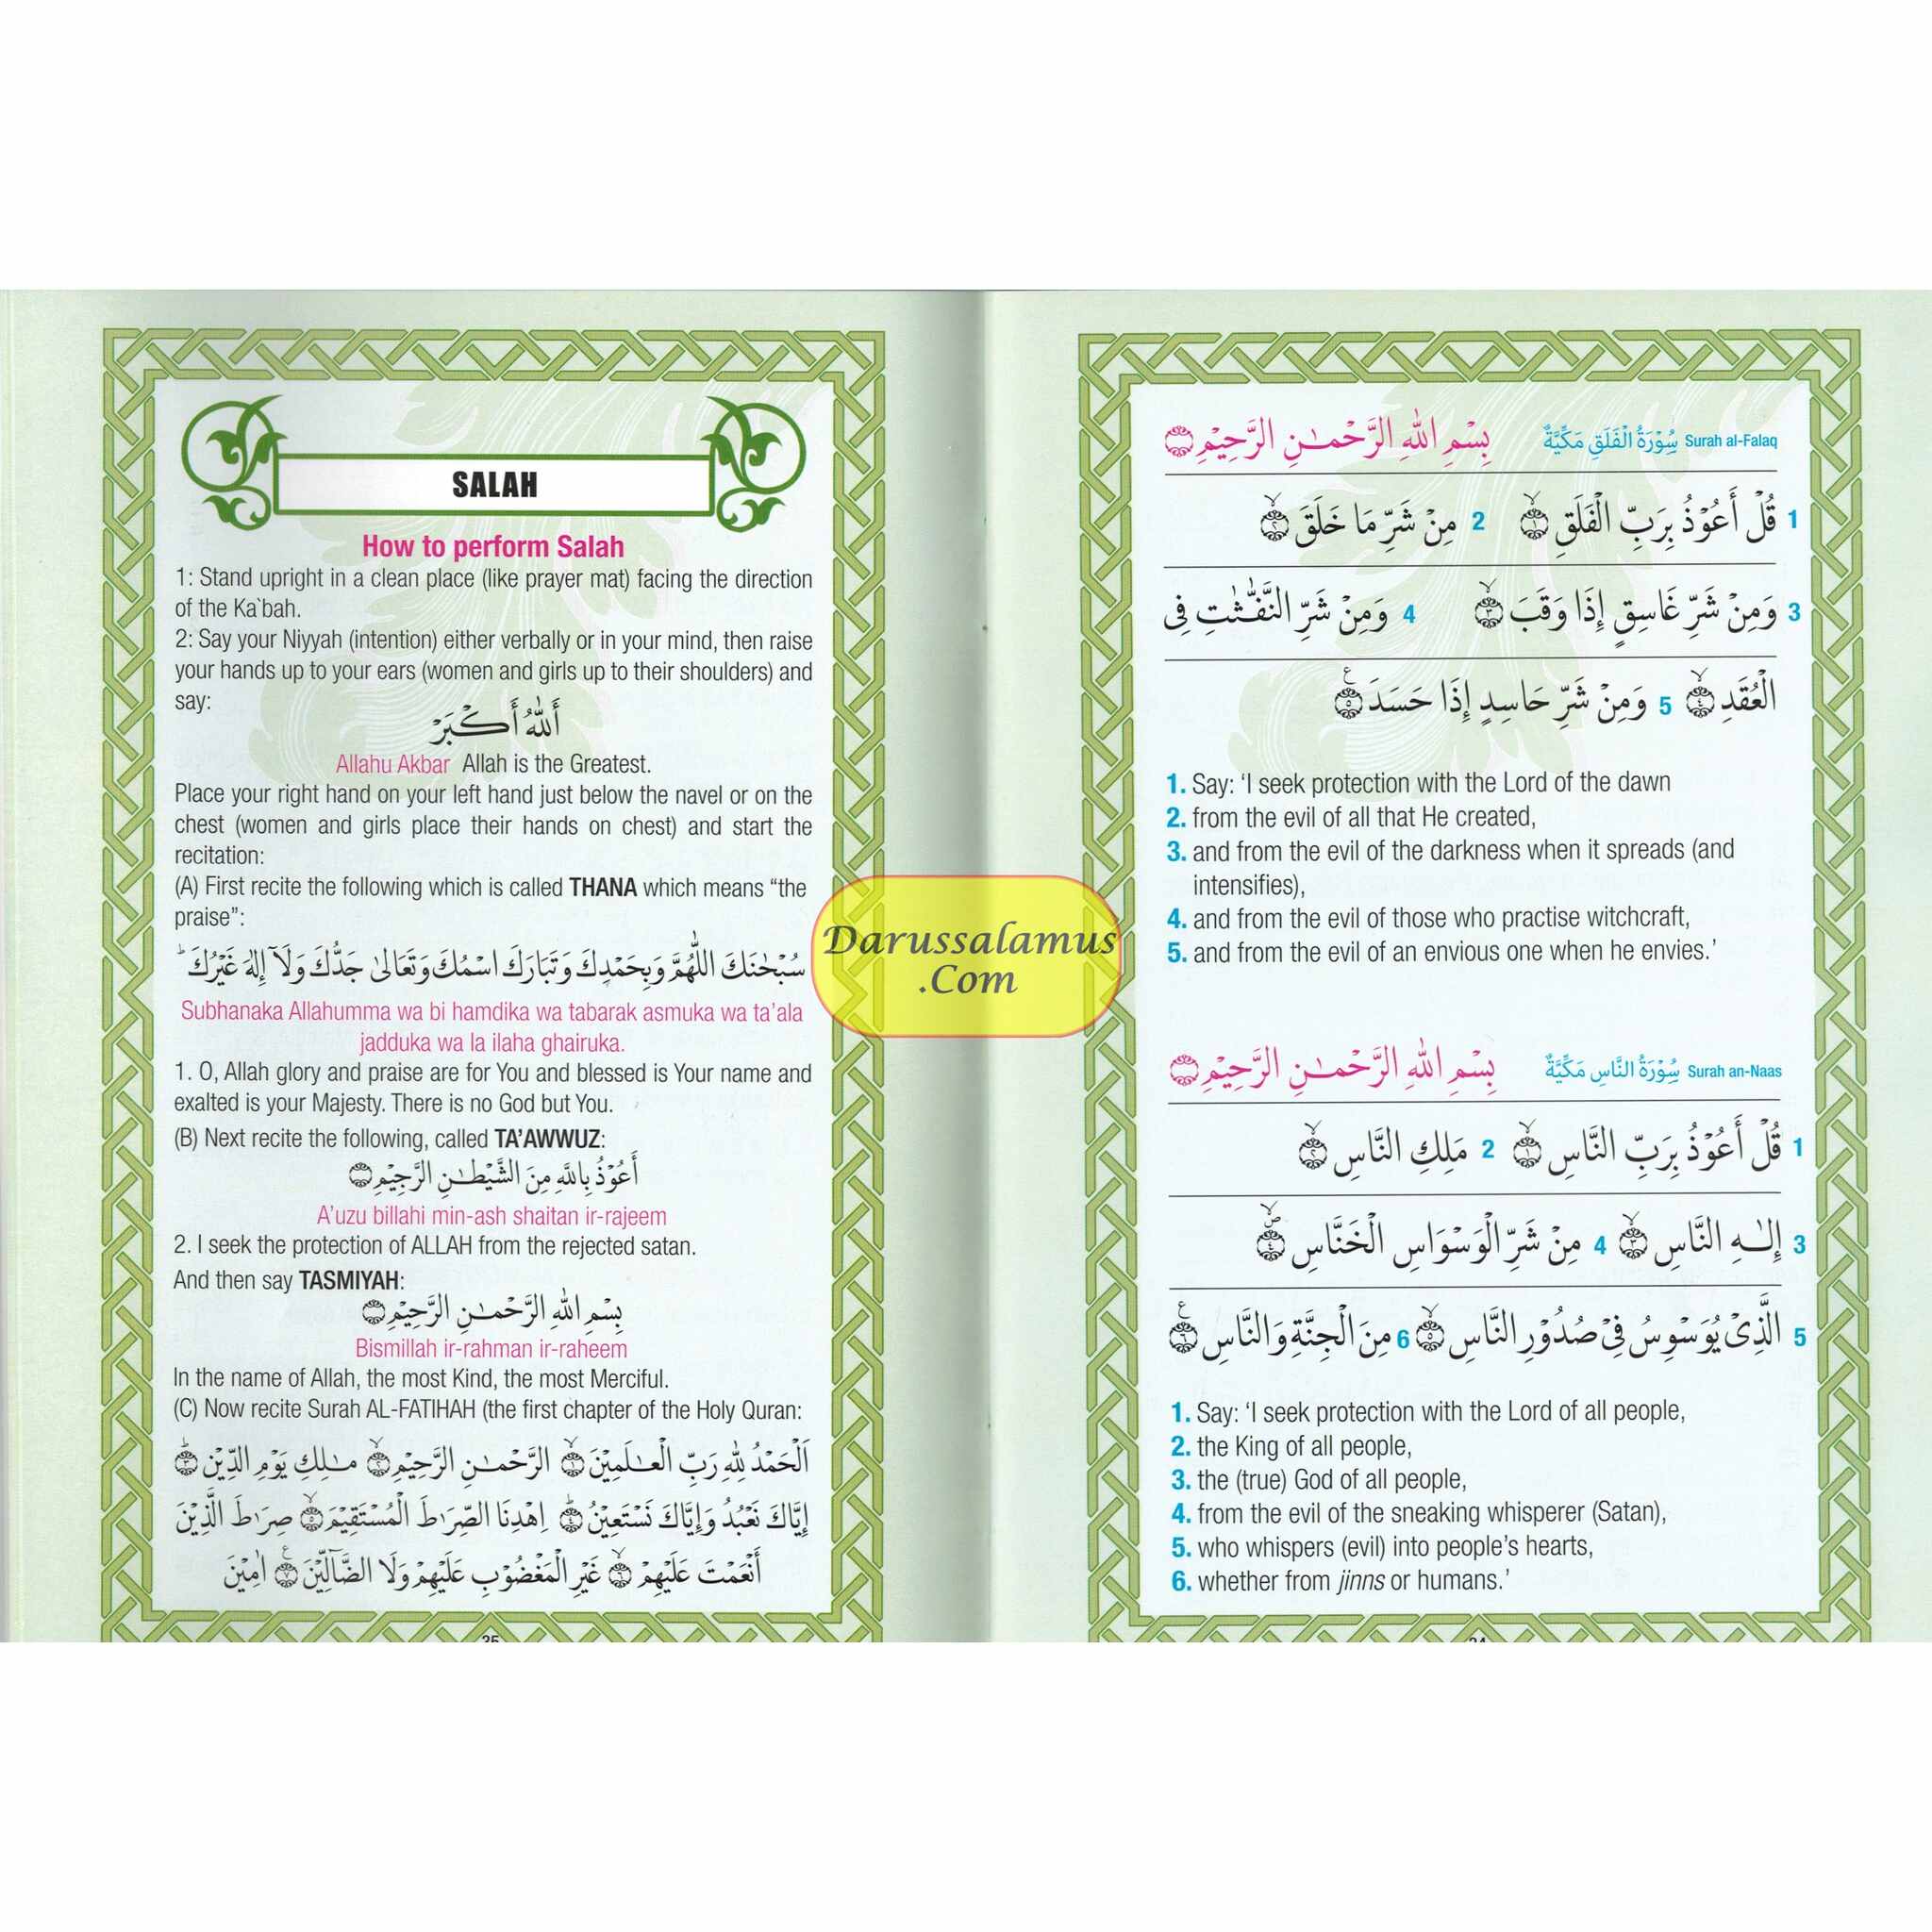 بِسْمِ اللهِ الرَّحْمٰنِ الرَّحِيْمِ سُوْرَةُ الْفَلَقِ مَكِّيَّةٌ Surah al-Falaq
1 قُلْ أَعُوْذُ بِرَبِّ الْفَلَقِ ۝١ 2 مِنْ شَرِّ مَا خَلَقَ ۝٢
3 وَمِنْ شَرِّ غَاسِقٍ إِذَا وَقَبَ ۝٣ 4 وَمِنْ شَرِّ النَّفّٰثٰتِ فِى
الْعُقَدِ ۝٤ 5 وَمِنْ شَرِّ حَاسِدٍ إِذَا حَسَدَ ۝٥
1. Say: ‘I seek protection with the Lord of the dawn
2. from the evil of all that He created,
3. and from the evil of the darkness when it spreads (and
intensifies),
4. and from the evil of those who practise witchcraft,
5. and from the evil of an envious one when he envies.’
بِسْمِ اللهِ الرَّحْمٰنِ الرَّحِيْمِ سُوْرَةُ النَّاسِ مَكِّيَّةٌ Surah an-Naas
1 قُلْ أَعُوْذُ بِرَبِّ النَّاسِ ۝١ 2 مَلِكِ النَّاسِ ۝٢
3 إِلٰهِ النَّاسِ ۝٣ 4 مِنْ شَرِّ الْوَسْوَاسِ الْخَنَّاسِ ۝٤
5 الَّذِىْ يُوَسْوِسُ فِىْ صُدُوْرِ النَّاسِ ۝٥ 6 مِنَ الْجِنَّةِ وَالنَّاسِ ۝٦
1. Say: ‘I seek protection with the Lord of all people,
2. the King of all people,
3. the (true) God of all people,
4. from the evil of the sneaking whisperer (Satan),
5. who whispers (evil) into people’s hearts,
6. whether from jinns or humans.’
SALAH
How to perform Salah
1: Stand upright in a clean place (like prayer mat) facing the direction
of the Ka`bah.
2: Say your Niyyah (intention) either verbally or in your mind, then raise
your hands up to your ears (women and girls up to their shoulders) and
say:
أَللهُ أَكْبَرْ
Allahu Akbar Allah is the Greatest.
Place your right hand on your left hand just below the navel or on the
chest (women and girls place their hands on chest) and start the
recitation:
(A) First recite the following which is called THANA which means “the
praise”:
سُبْحٰنَكَ اللّٰهُمَّ وَبِحَمْدِكَ وَتَبَارَكَ اسْمُكَ وَتَعَالٰى جَدُّكَ وَلَآ إِلٰهَ غَيْرُكَ
Subhanaka Allahumma wa bi hamdika wa tabarak asmuka wa ta’ala
jadduka wa la ilaha ghairuka.
1. O, Allah glory and praise are for You and blessed is Your name and
exalted is your Majesty. There is no God but You.
(B) Next recite the following, called TA’AWWUZ:
أَعُوْذُ بِاللهِ مِنَ الشَّيْطٰنِ الرَّجِيْمِ
A’uzu billahi min-ash shaitan ir-rajeem
2. I seek the protection of ALLAH from the rejected satan.
And then say TASMIYAH:
بِسْمِ اللهِ الرَّحْمٰنِ الرَّحِيْمِ
Bismillah ir-rahman ir-raheem
In the name of Allah, the most Kind, the most Merciful.
(C) Now recite Surah AL-FATIHAH (the first chapter of the Holy Quran:
اَلْحَمْدُ لِلّٰهِ رَبِّ الْعٰلَمِيْنَ ۝١ الرَّحْمٰنِ الرَّحِيْمِ ۝٢ مٰلِكِ يَوْمِ الدِّيْنِ ۝٣
إِيَّاكَ نَعْبُدُ وَإِيَّاكَ نَسْتَعِيْنُ ۝٤ اِهْدِنَا الصِّرَاطَ الْمُسْتَقِيْمَ ۝٥ صِرَاطَ الَّذِيْنَ
أَنْعَمْتَ عَلَيْهِمْ ۝٦ غَيْرِ الْمَغْضُوْبِ عَلَيْهِمْ وَلَا الضَّآلِّيْنَ ۝٧ اٰمِيْنَ
Darussalamus
.Com